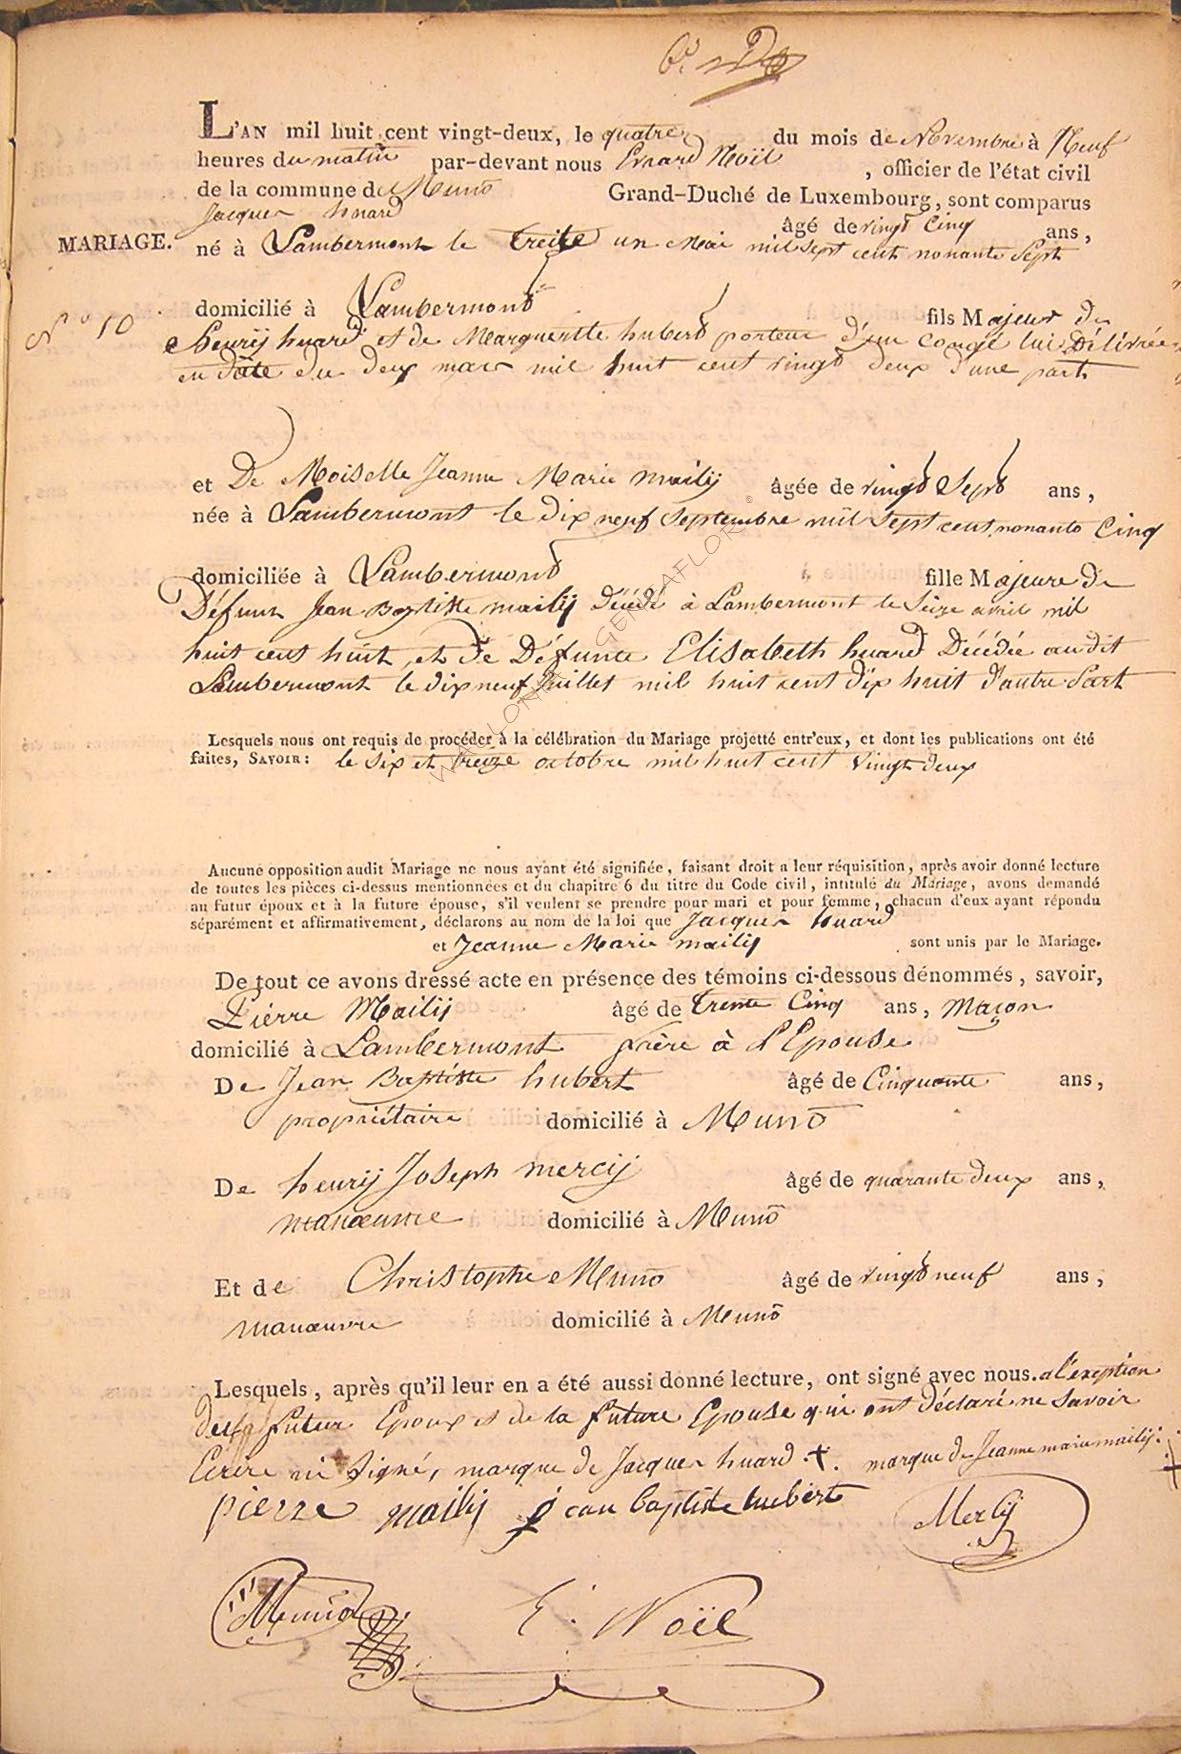 L'AN mil huit cent vingt-deux, le quatre du mois de Novembre à Neuf
heures du matin par-devant nous Evrard Noël, officier de l'état civil
de la commune de Muno Grand-Duché de Luxembourg, sont comparus
Jacques huard âgé de vingt Cinq ans,
MARIAGE. né à Lambermont le treite un Mai mil sept cent nonante Sept
N° 10
domicilié à Lambermont fils Majeur de
henrij huard et de Margueritte hubert porteur d'un congé lui Délivrée
en date du deux mars mil huit cent vingt deux d'une part
et De Moiselle Jeanne Marie mailij âgée de vingt Sept ans,
née à Lambermont le dix neuf Septembre mil Sept cent nonante Cinq
domiciliée à Lambermont fille Majeure de
Défunt Jean Baptiste mailij Décédé à Lambermont le Seize avril mil
huit cent huit, et de Défunte Elisabeth huard Décédée audit
Lambermont le dix neuf Juillet mil huit cent dix huit d'autre Part
Lesquels nous ont requis de procéder à la célébration du Mariage projetté entr'eux, et dont les publications ont été
faites, SAVOIR: le six et treize octobre mil huit cent vingt deux
Aucune opposition audit Mariage ne nous ayant été signifiée, faisant droit a leur réquisition, après avoir donné lecture
de toutes les pièces ci-dessus mentionnées et du chapitre 6 du titre du Code civil, intitulé du Mariage, avons demandé
au futur époux et à la future épouse, s'il veulent se prendre pour mari et pour femme, chacun d'eux ayant répondu
séparément et affirmativement, déclarons au nom de la loi que Jacques huard
et Jeanne Marie mailij sont unis par le Mariage.
De tout ce avons dressé acte en présence des témoins ci-dessous dénommés, savoir,
Pierre Mailij âgé de trente Cinq ans, Maçon
domicilié à Lambermont frère à l'Epouse
De Jean Baptiste hubert âgé de Cinquante ans,
propriétaire domicilié à Muno
De henrij Joseph mercij âgé de quarante deux ans,
manoeuvre domicilié à Muno
Et de Christophe Muno âgé de vingt neuf ans,
manoeuvre domicilié à Muno
Lesquels, après qu'il leur en a été aussi donné lecture, ont signé avec nous. a l'exeption
du futur Epoux et de la future Epouse qui ont déclaré ne Savoir
Ecrire ni Signé, marque de Jacques huard + marque de Jeanne marie mailij: +
pierre mailij jean baptiste hubert Mercij
Muno E. Noël
WALLONIE GENEAFLOR ©